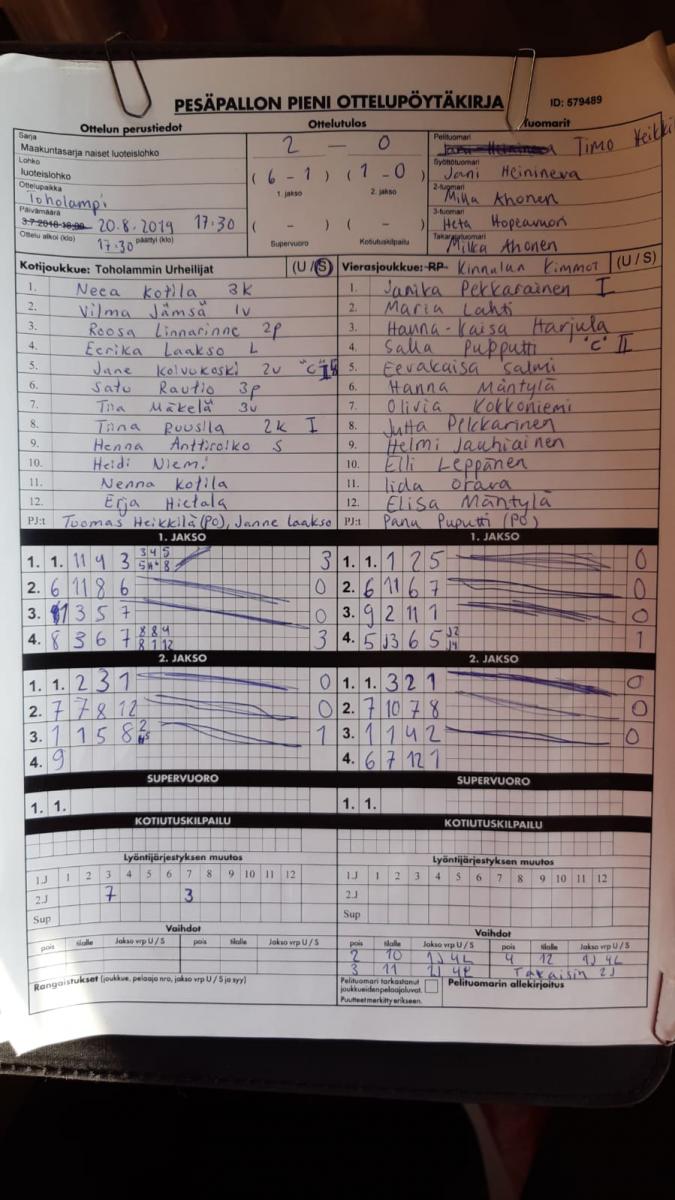 PESÄPALLON PIENI OTTELUPÖYTÄKIRJA ID: 579489
Ottelun perustiedot Ottelutulos Tuomarit
Sarja
Maakuntasarja naiset luoteislohko
Lohko
luoteislohko
Ottelupaikka
Toholampi
Päivämäärä
20.8.2019 17:30
Ottelu alkoi (klo) 17:30 päättyi (klo)
2 – 0
( 6 - 1 ) ( 1 - 0 )
1. jakso 2. jakso
( - ) ( - )
Supervuoro Kotiutuskilpailu
Pelituomari
Timo Heikki
Syöttötuomari
Jani Heinineva
2-tuomari
Milka Ahonen
3-tuomari
Heta Hopeavuori
Takarajatuomari
Milka Ahonen
Kotijoukkue: Toholammin Urheilijat (U / S) Vierasjoukkue: RP Kinnulan Kimmot (U / S)
1. Neea Kotila 3k 1. Janika Pekkarainen I
2. Vilma Jämsä 1v 2. Maria Lahti
3. Roosa Linnarinne 2p 3. Hanna-Kaisa Harjula
4. Eerika Laakso L 4. Salla Pupputti "C" II
5. Jane Koivukoski 2v "C" 5. Eevakaisa Salmi
6. Satu Rautio 3p 6. Hanna Mäntylä
7. Tiia Mäkelä 3v 7. Olivia Kokkoniemi
8. Tiina Ruusila 2k I 8. Jutta Pekkarinen
9. Henna Anttiroiko S 9. Helmi Jauhiainen
10. Heidi Niemi 10. Elli Leppänen
11. Nenna Kotila 11. Iida Orava
12. Erja Hietala 12. Elisa Mäntylä
PJ:t Tuomas Heikkilä (PO), Janne Laakso PJ:t Panu Puputti (PO)
1. JAKSO 1. JAKSO
1. 1. 11 4 3 3 4 5 3 1. 1. 1 2 5 0
2. 6 11 8 6 0 2. 6 11 6 7 0
3. 1 3 5 7 0 3. 9 2 11 1 0
4. 8 3 6 7 8 8 4 8 1 12 3 4. 5 J3 6 5 J2 J4 1
2. JAKSO 2. JAKSO
1. 1. 2 3 1 0 1. 1. 3 2 1 0
2. 7 7 8 12 0 2. 7 10 7 8 0
3. 1 1 5 8 2 1 3. 1 1 4 2 0
4. 9 4. 6 7 12 1
SUPERVUORO SUPERVUORO
1. 1. 1. 1.
KOTIUTUSKILPAILU KOTIUTUSKILPAILU
Lyöntijärjestyksen muutos Lyöntijärjestyksen muutos
1.J 1 2 3 4 5 6 7 8 9 10 11 12 1.J 1 2 3 4 5 6 7 8 9 10 11 12
2.J 7 3 2.J
Sup Sup
Vaihdot Vaihdot
pois tilalle Jakso vrp U / S pois tilalle Jakso vrp U / S pois tilalle Jakso vrp U / S pois tilalle Jakso vrp U / S
2 10 1J 4L 4 12 1J 4L
3 11 1J 4L Takaisin 2J
Rangaistukset (joukkue, pelaaja nro, jakso vrp U / S ja syy)
Pelituomari tarkastanut joukkueiden pelaajaluvat.
Puutteet merkitty erikseen.
Pelituomarin allekirjoitus